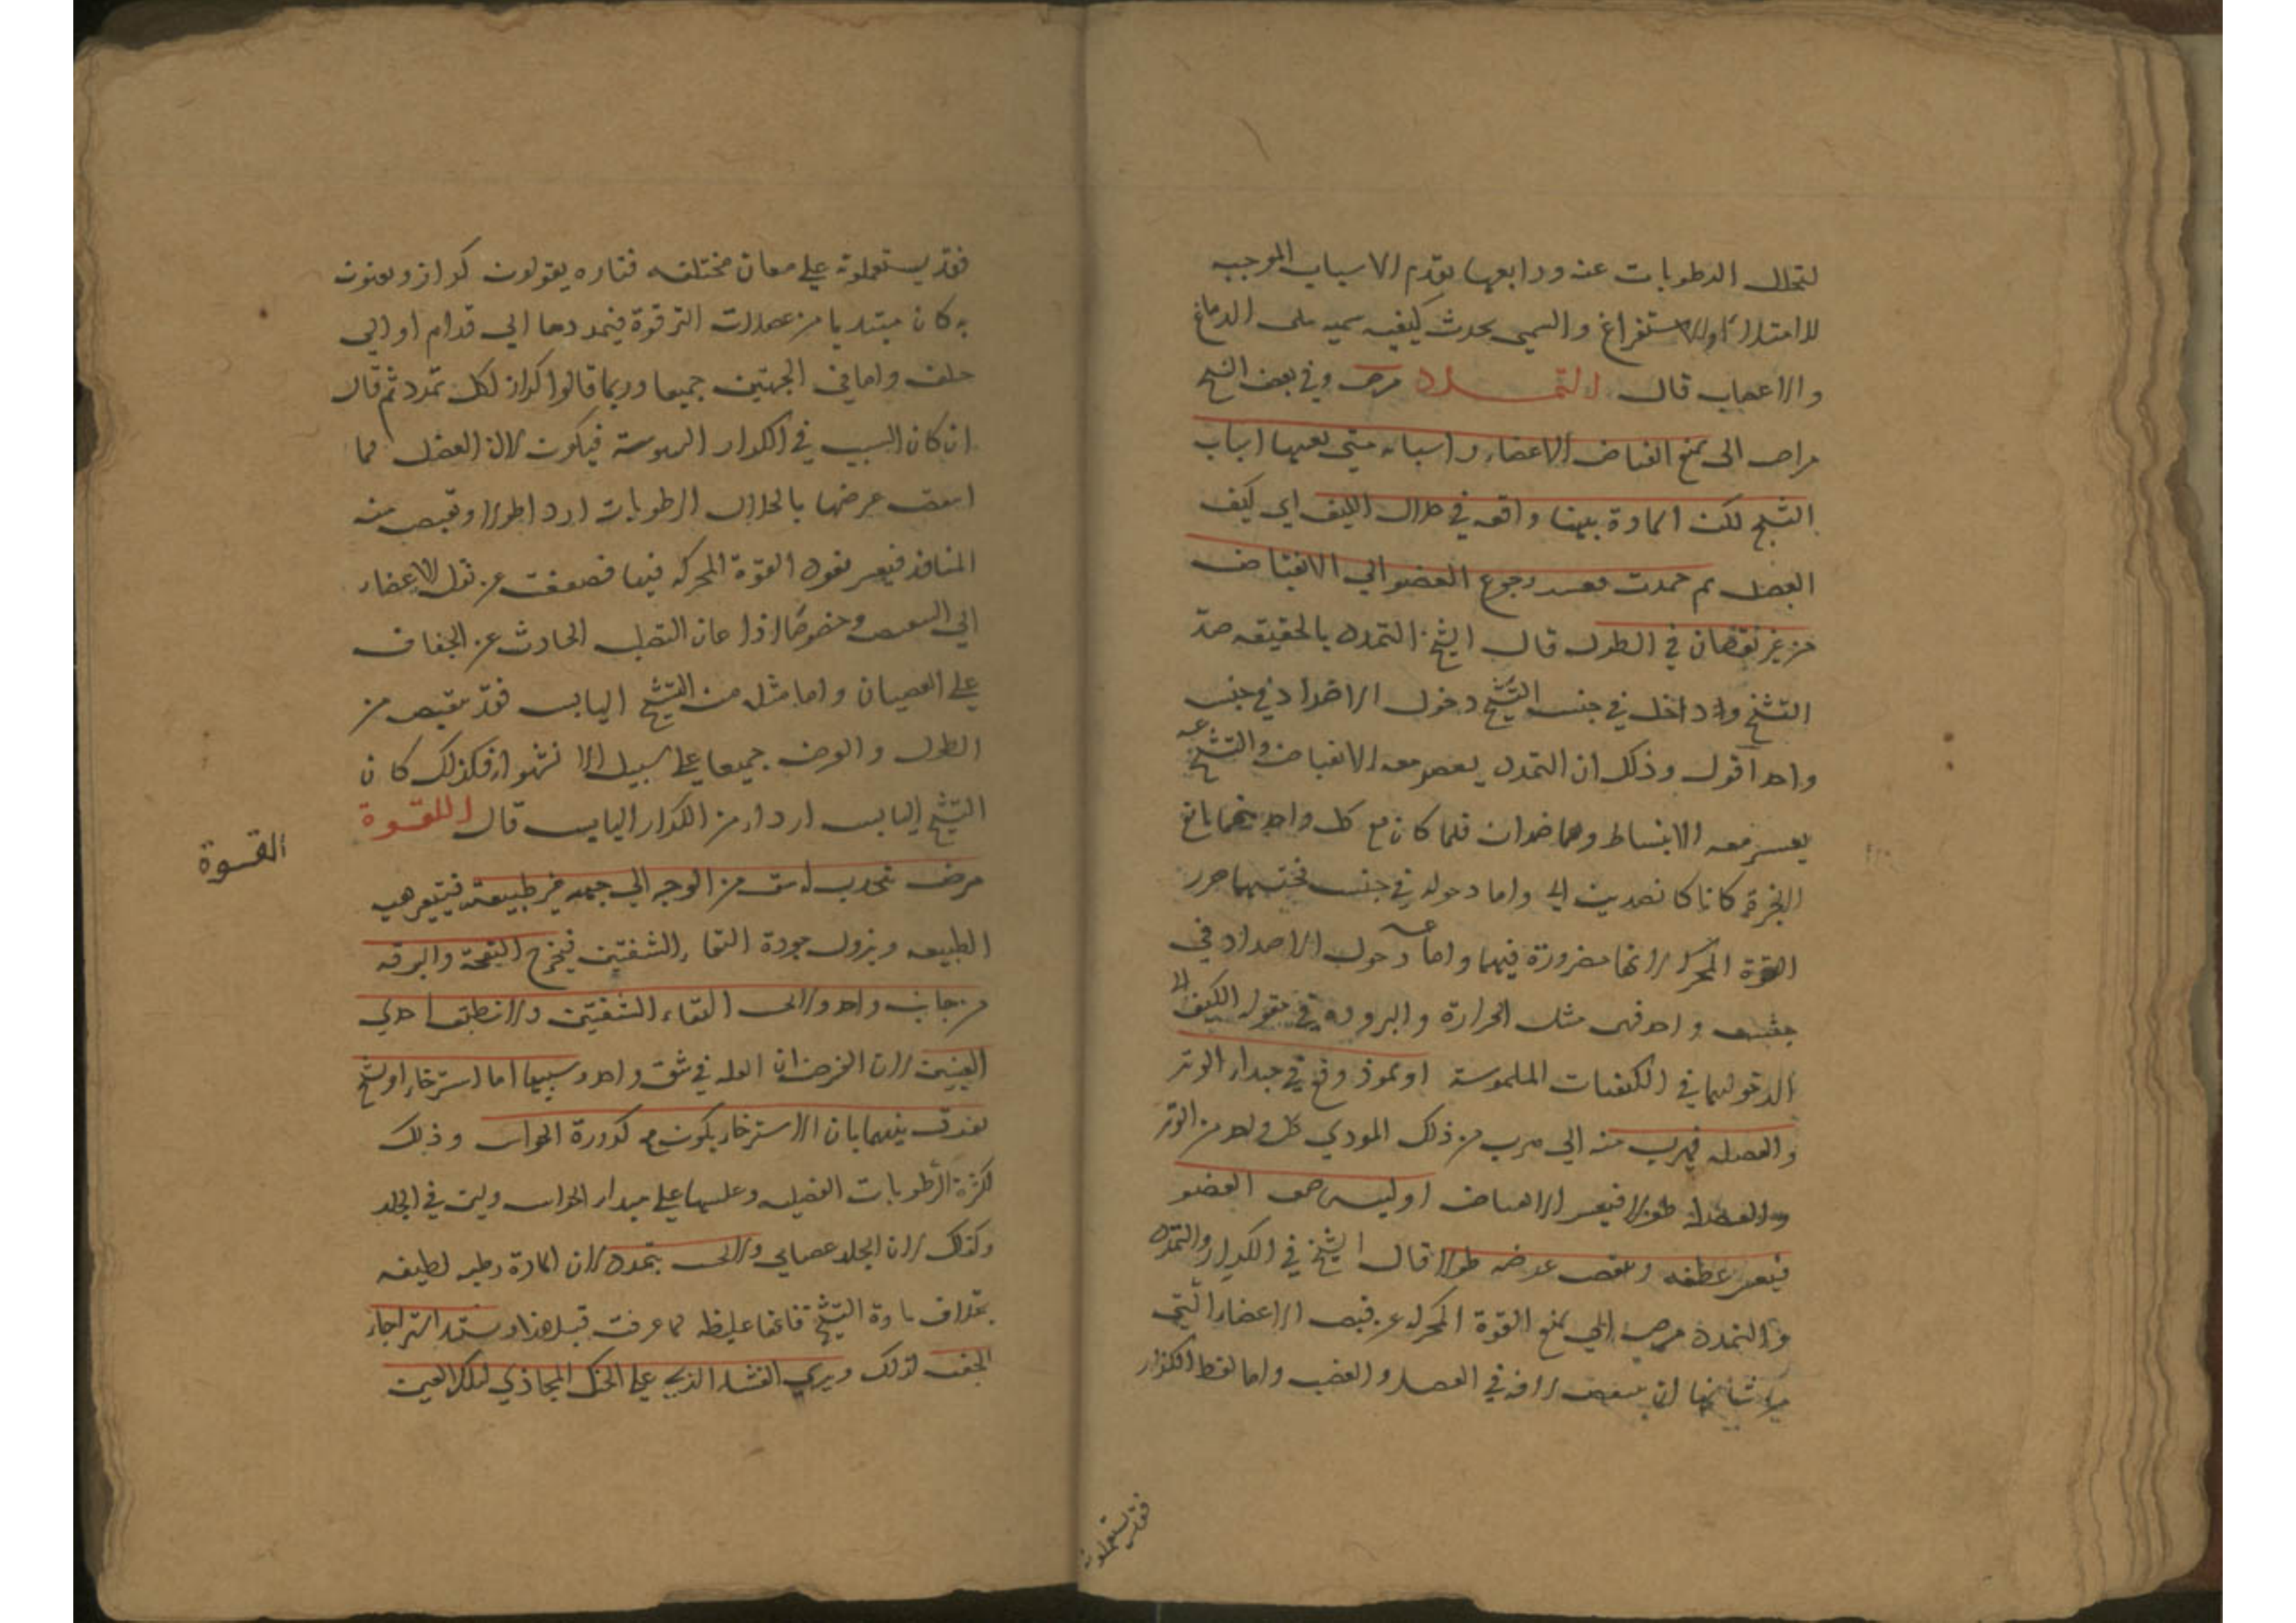 لتحلل الرطوبات عنه ورابعها تقدم الاسباب الموجبه
للامتلاء او الاستفراغ واليمى يحدث كيفيه سميه الدماغ
والاعصاب قال التمدد مرض وفي بعض النسخ
مراض الى يمنع انقباض الاعضاء واسبابه بعينها اسباب
التشنج لكن المادة بهنا واقعه في خلال الليف اي ليف
العضل ثم جمدت فعسر رجوع العضو الي الانقباض
من غير نقصان في الطول قال الشيخ التمدد بالحقيقه ضد
التشنج وداخل في جنس التشنج دخول الاضداد في جنس
واحد اقول وذلك ان التمدد يعسر معه الانقباض والتشنج
يعسر معه الانبساط وهما ضدان فلما كان مع كل واحد منهما
كانا كا واما دخوله في جنس
القوة المحركه لانها فيهما واما دخول الاضداد في
جنس واحد فهى مثل الحرارة والبروده في مقوله الكيف
في الكيفيات الملموسة او لموذ وقع في مبداء الوتر
والعضله فيهرب منه الي من ذلك الموذي كل واحد من الوتر
والعضله طولا فيعسر الانقباض او ليبس العضو
فيعسر عطفه وينقص عرضه طولا قال الشيخ في الكزاز والتمدد
والتمدد مرض الي يمنع القوة المحركه عن قبض الاعضاء التي
من شانها ان لافة في العضل والعصب واما لفظ الكزاز
فقد يستعملونه
فقد يستعملونه علي معان مختلفه فتاره يقولون كزاز ويعنون
به كان مبتديا من عضلات الترقوة فيمددها الي قدام او الي
خلف واما في الجهتين جميعا وربما قالوا كزاز لكل تمدد ثم قال
ان كان السبب في الكزاز اليبوسة فيكون لان العضل لما
عرضها بانحلال الرطوبات ازداد طولا وتقبض منه
المنافذ فيعسر نفوذ القوة المحركه فيها فضعفت عن نقل الاعضاء
الي وخصوصا اذا عان التصلب الحادث عن الجفاف
علي العصيان واما مثله من التشنج اليابس فقد ينقبض من
الطول والعرض جميعا علي سبيل فكذلك كان
التشنج اليابس اردا من الكزاز اليابس قال اللقوة
القسوة
مرض ينجذب له شق من الوجه الي جهه غير طبيعة فيتغير هيه
الطبيعه ويزول جودة التقاء الشفتين فيخرج النفخة والبزقه
من جانب واحد ولا التقاء الشفتين ولا تنطبق احدي
العينين لان الغرض ان العله في شق واحد وسببها اما استرخاء او تشنج
يفرق بينهما بان الاسترخاء يكون مع كدورة الحواس وذلك
لكثرة الرطوبات الفضليه وغلبتها علي مبداء الحواس ولين في الجلد
وكذلك لان الجلد عصباني ولا يتمدد لان المادة رطبه لطيفه
بخلاف مادة التشنج فانها غليظه لما عرفت قبل هذا ويستد استرخاء
الجفن لذلك ويري الغشاء الذي علي الحنك المحاذي لتلك العين